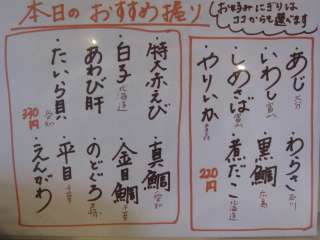 本日のおすすめ握り
お好みにぎりは
ココからも選べます
・あじ 大分
・いわし 富山
・しめさば 富山
・やりいか
・わらさ 石川
・黒鯛 広島
・煮だこ 北海道
220円
・特大赤えび
・白子 北海道
・あわび肝
・たいら貝 愛知
・真鯛 愛知
・金目鯛 千葉
・のどぐろ
・平目 千葉
・えんがわ
330円